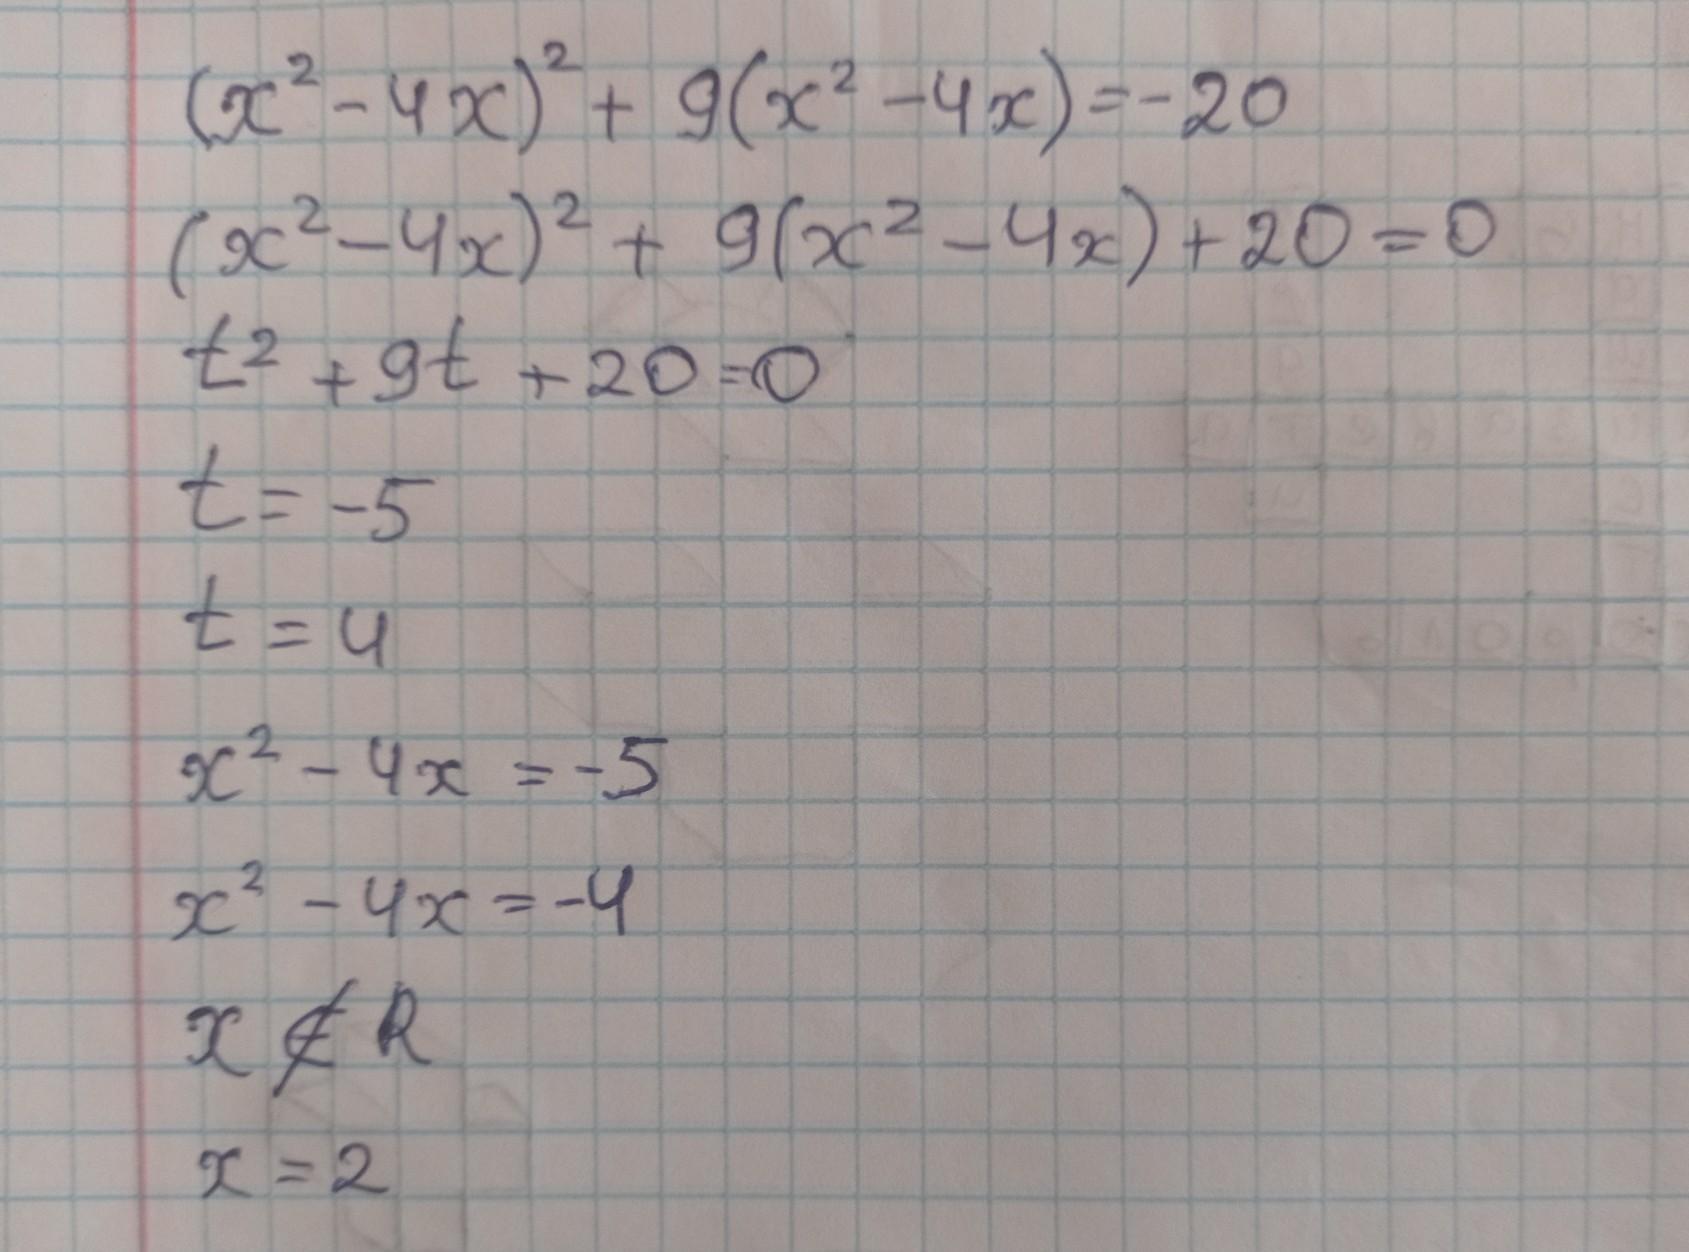 (x² - 4x)² + 9(x² - 4x) = -20
(x² - 4x)² + 9(x² - 4x) + 20 = 0
t² + 9t + 20 = 0
t = -5
t = 4
x² - 4x = -5
x² - 4x = -4
x ∉ R
x = 2